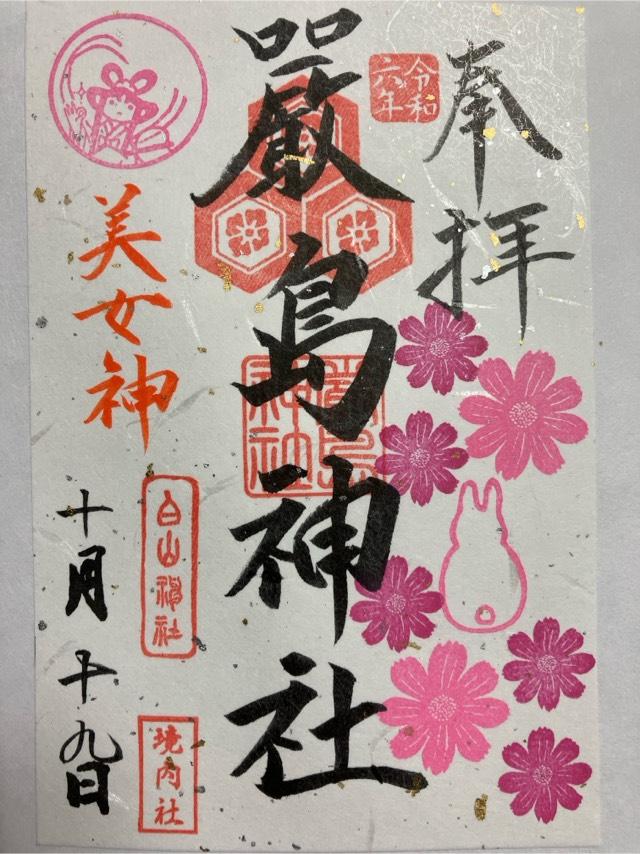 奉拝
令和
六年
嚴島神社
嚴島
神社
美女神
白山神社
境内社
十月十九日